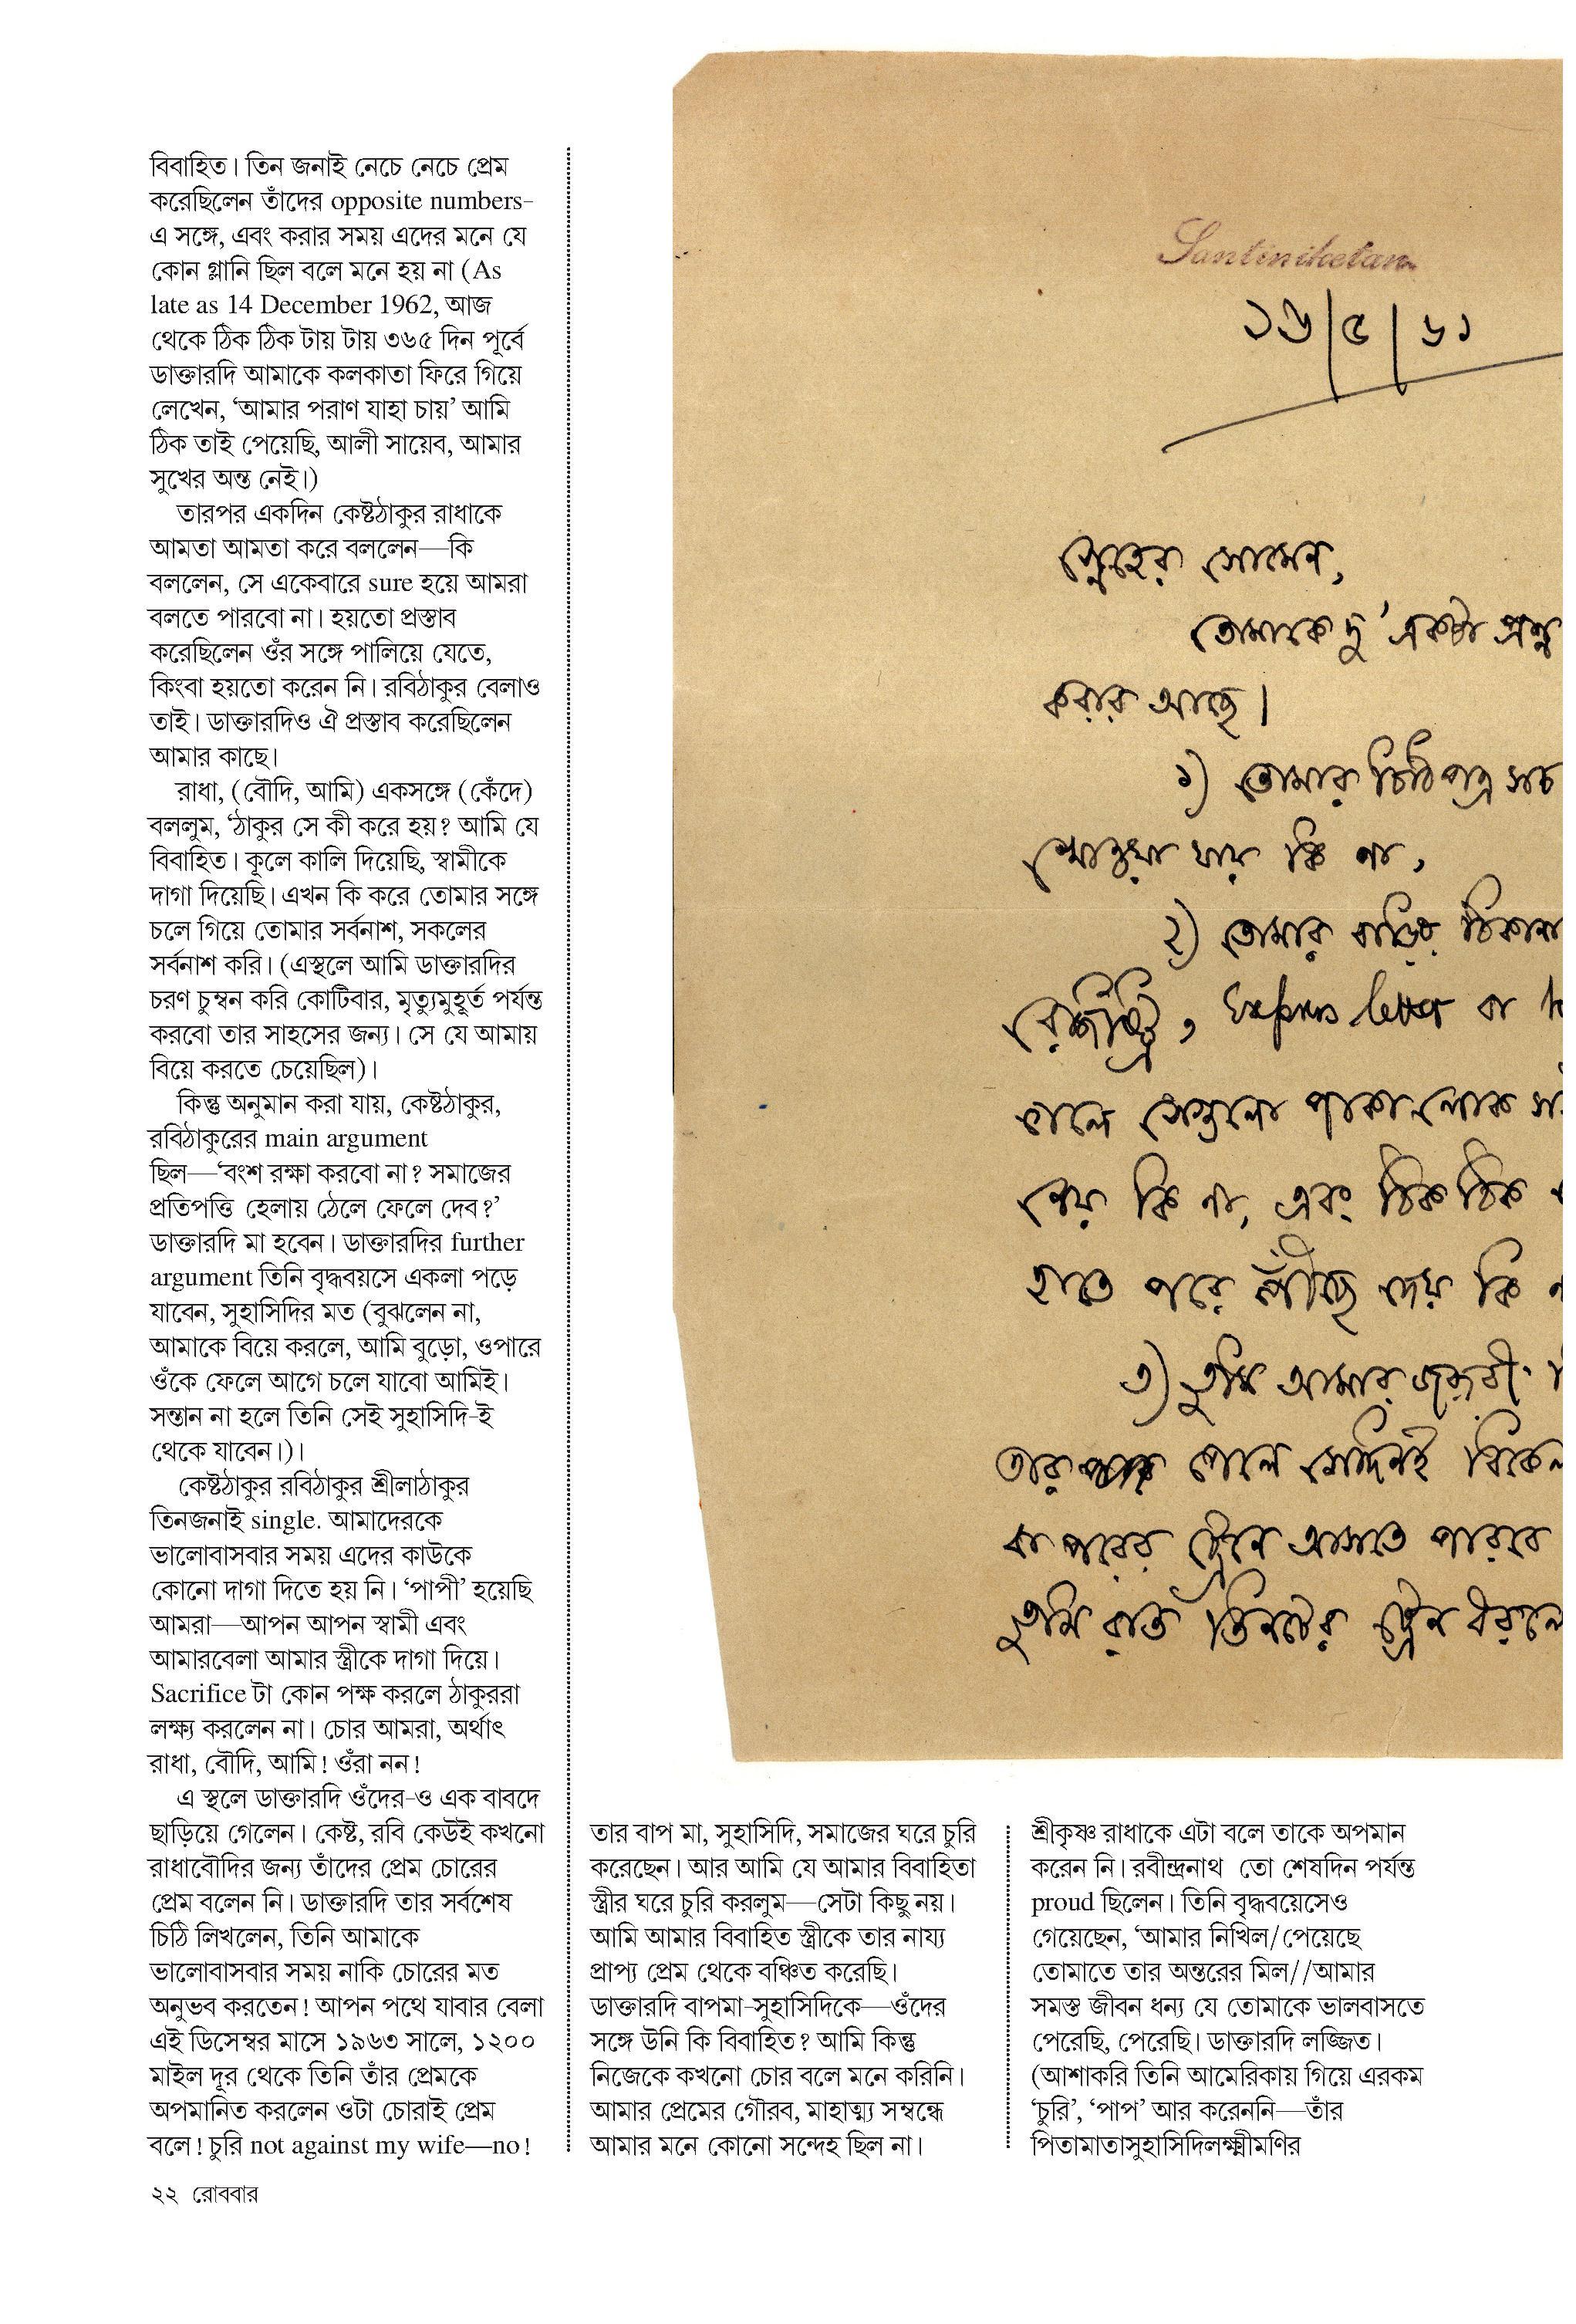 বিবাহিত। তিন জনাই নেচে নেচে প্রেম
করেছিলেন তাঁদের opposite numbers-
এ সঙ্গে, এবং করার সময় এদের মনে যে
কোন গ্লানি ছিল বলে মনে হয় না (As
late as 14 December 1962, আজ
থেকে ঠিক ঠিক টায় টায় ৩৬৫ দিন পূর্বে
ডাক্তারদি আমাকে কলকাতা ফিরে গিয়ে
লেখেন, ‘আমার পরাণ যাহা চায়’ আমি
ঠিক তাই পেয়েছি, আলী সায়েব, আমার
সুখের অন্ত নেই।)
তারপর একদিন কেষ্টঠাকুর রাধাকে
আমতা আমতা করে বললেন—কি
বললেন, সে একেবারে sure হয়ে আমরা
বলতে পারবো না। হয়তো প্রস্তাব
করেছিলেন ওঁর সঙ্গে পালিয়ে যেতে,
কিংবা হয়তো করেন নি। রবিঠাকুর বেলাও
তাই। ডাক্তারদিও ঐ প্রস্তাব করেছিলেন
আমার কাছে।
রাধা, (বৌদি, আমি) একসঙ্গে (কেঁদে)
বললুম, ‘ঠাকুর সে কী করে হয়? আমি যে
বিবাহিত। কূলে কালি দিয়েছি, স্বামীকে
দাগা দিয়েছি। এখন কি করে তোমার সঙ্গে
চলে গিয়ে তোমার সর্বনাশ, সকলের
সর্বনাশ করি। (এস্থলে আমি ডাক্তারদির
চরণ চুম্বন করি কোটিবার, মৃত্যুমুহূর্ত পর্যন্ত
করবো তার সাহসের জন্য। সে যে আমায়
বিয়ে করতে চেয়েছিল)।
কিন্তু অনুমান করা যায়, কেষ্টঠাকুর,
রবিঠাকুরের main argument
ছিল—‘বংশ রক্ষা করবো না? সমাজের
প্রতিপত্তি হেলায় ঠেলে ফেলে দেব?’
ডাক্তারদি মা হবেন। ডাক্তারদির further
argument তিনি বৃদ্ধবয়সে একলা পড়ে
যাবেন, সুহাসিদির মত (বুঝলেন না,
আমাকে বিয়ে করলে, আমি বুড়ো, ওপারে
ওঁকে ফেলে আগে চলে যাবো আমিই।
সন্তান না হলে তিনি সেই সুহাসিদি-ই
থেকে যাবেন।)।
কেষ্টঠাকুর রবিঠাকুর শ্রীলাঠাকুর
তিনজনাই single. আমাদেরকে
ভালোবাসবার সময় এদের কাউকে
কোনো দাগা দিতে হয় নি। ‘পাপী’ হয়েছি
আমরা—আপন আপন স্বামী এবং
আমারবেলা আমার স্ত্রীকে দাগা দিয়ে।
Sacrifice টা কোন পক্ষ করলে ঠাকুররা
লক্ষ্য করলেন না। চোর আমরা, অর্থাৎ
রাধা, বৌদি, আমি! ওঁরা নন!
এ স্থলে ডাক্তারদি ওঁদের-ও এক বাবদে
ছাড়িয়ে গেলেন। কেষ্ট, রবি কেউই কখনো
রাধাবৌদির জন্য তাঁদের প্রেম চোরের
প্রেম বলেন নি। ডাক্তারদি তার সর্বশেষ
চিঠি লিখলেন, তিনি আমাকে
ভালোবাসবার সময় নাকি চোরের মত
অনুভব করতেন! আপন পথে যাবার বেলা
এই ডিসেম্বর মাসে ১৯৬৩ সালে, ১২০০
মাইল দূর থেকে তিনি তাঁর প্রেমকে
অপমানিত করলেন ওটা চোরাই প্রেম
বলে! চুরি not against my wife—no!
Santiniketan
১৬/৫/৬১
স্নেহের সোমেন,
তোমাকে দু'একটা প্রশ্ন
করার আছে।
১) তোমার চিঠিপত্র
খোওয়া যায় কি না,
২) তোমার বাড়ির ঠিকানা
রেজিষ্ট্রি, Express letter বা
এলে সেগুলো পাকা লোক
নেয় কি না, এবং ঠিক ঠিক
হাতে পরে পৌঁছে দেয় কি
৩) তুমি আমার জরুরী
তার পেলে সেদিনই বিকেল
বা পরের ট্রেনে আসতে পারবে
তুমি রাত তিনটের ট্রেন ধরলে
তার বাপ মা, সুহাসিদি, সমাজের ঘরে চুরি
করেছেন। আর আমি যে আমার বিবাহিতা
স্ত্রীর ঘরে চুরি করলুম—সেটা কিছু নয়।
আমি আমার বিবাহিত স্ত্রীকে তার নায্য
প্রাপ্য প্রেম থেকে বঞ্চিত করেছি।
ডাক্তারদি বাপমা-সুহাসিদিকে—ওঁদের
সঙ্গে উনি কি বিবাহিত? আমি কিন্তু
নিজেকে কখনো চোর বলে মনে করিনি।
আমার প্রেমের গৌরব, মাহাত্ম্য সম্বন্ধে
আমার মনে কোনো সন্দেহ ছিল না।
শ্রীকৃষ্ণ রাধাকে এটা বলে তাকে অপমান
করেন নি। রবীন্দ্রনাথ তো শেষদিন পর্যন্ত
proud ছিলেন। তিনি বৃদ্ধবয়েসেও
গেয়েছেন, ‘আমার নিখিল/পেয়েছে
তোমাতে তার অন্তরের মিল//আমার
সমস্ত জীবন ধন্য যে তোমাকে ভালবাসতে
পেরেছি, পেরেছি। ডাক্তারদি লজ্জিত।
(আশাকরি তিনি আমেরিকায় গিয়ে এরকম
‘চুরি’, ‘পাপ’ আর করেননি—তাঁর
পিতামাতাসুহাসিদিলক্ষ্মীমণির
২২ রোববার